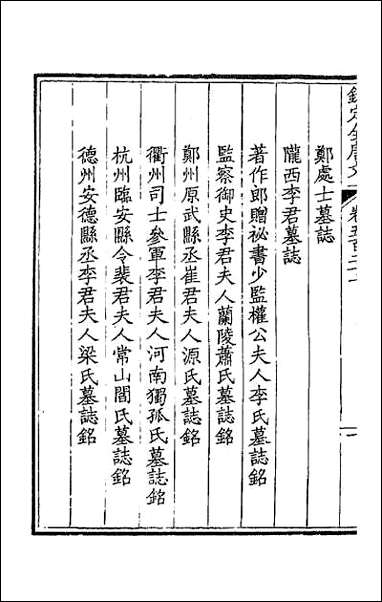 欽定全唐文 卷五百二十一 一
鄭處士墓誌
隴西李君墓誌
著作郎贈祕書少監權公夫人李氏墓誌銘
監察御史李君夫人蘭陵蕭氏墓誌銘
鄭州原武縣丞崔君夫人源氏墓誌銘
衢州司士參軍李君夫人河南獨孤氏墓誌銘
杭州臨安縣令裴君夫人常山閻氏墓誌銘
德州安德縣丞李君夫人梁氏墓誌銘